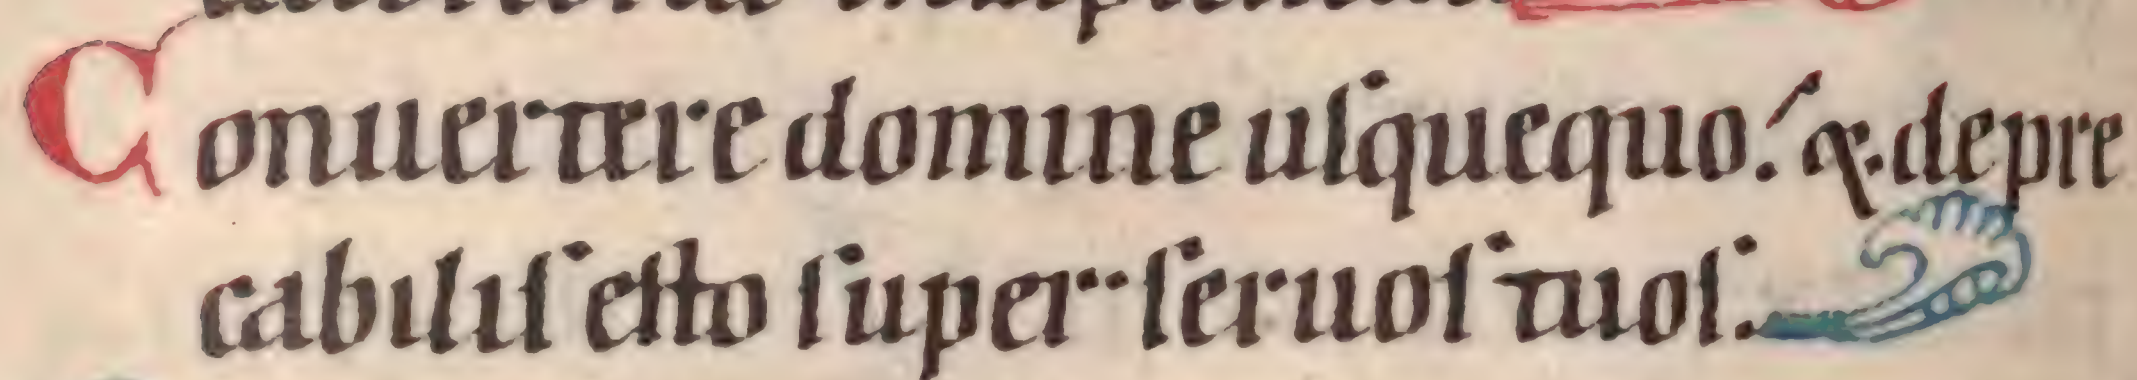 Conuertere domine uſquequo. & depre
cabiliſ eſto ſuper ſeruoſ tuoſ.